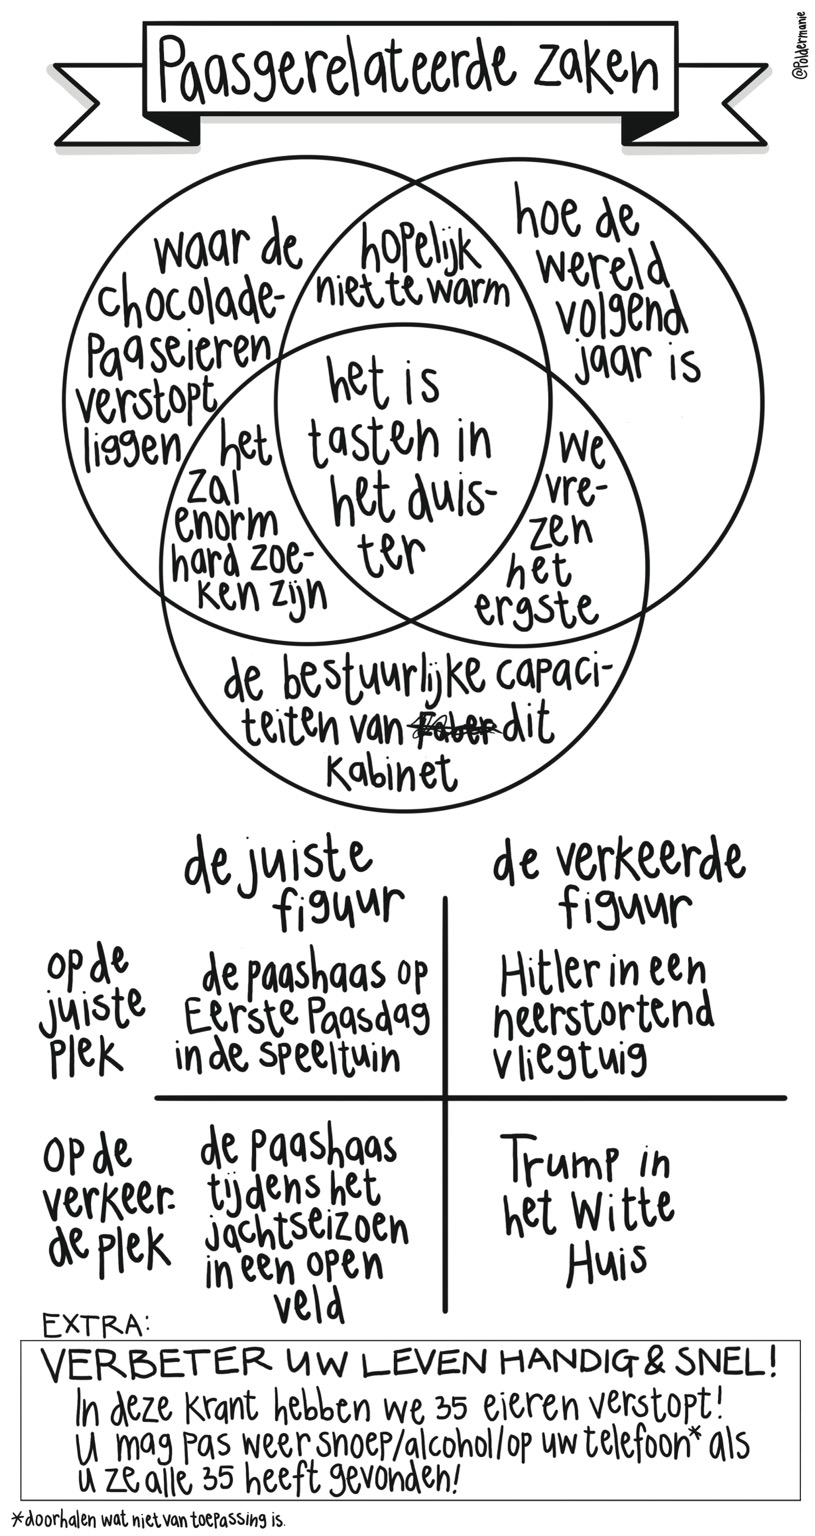 Paasgerelateerde zaken
@Poldermanie
waar de
chocolade-
paaseieren
verstopt
liggen
hopelijk
niet te warm
hoe de
wereld
volgend
jaar is
het is
tasten in
het duis-
ter
het
zal
enorm
hard zoe-
ken zijn
we
vre-
zen
het
ergste
de bestuurlijke capaci-
teiten van Faber dit
kabinet
de juiste
figuur
de verkeerde
figuur
op de
juiste
plek
de paashaas op
Eerste Paasdag
in de speeltuin
Hitler in een
neerstortend
vliegtuig
op de
verkeer-
de plek
de paashaas
tijdens het
jachtseizoen
in een open
veld
Trump in
het Witte
Huis
EXTRA:
VERBETER UW LEVEN HANDIG & SNEL!
In deze krant hebben we 35 eieren verstopt!
U mag pas weer snoep/alcohol/op uw telefoon* als
u ze alle 35 heeft gevonden!
*doorhalen wat niet van toepassing is.